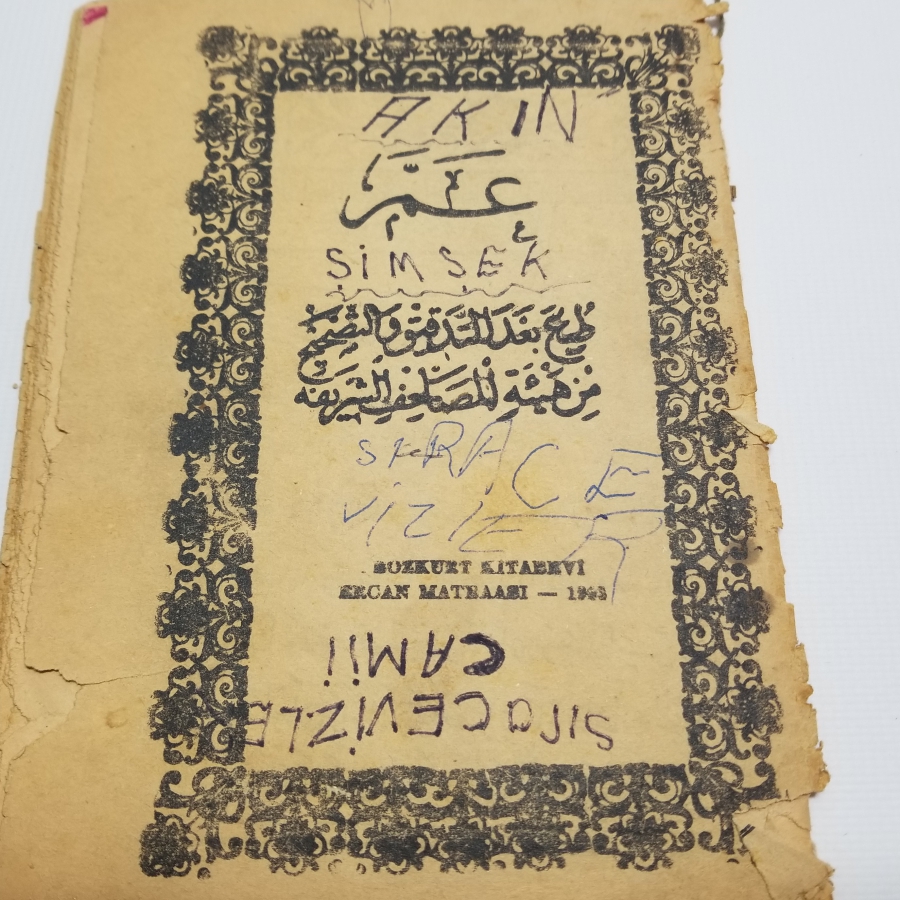 AKIN
عمّ
SİMSEK
طبع بعد التدقيق والتصحيح
من هيئة المصاحف الشريفه
SIRA CE
VİZLER
BOZKURT KİTABEVİ
ERCAN MATBAASI —
CAMİİ
SIraCEVİZLE